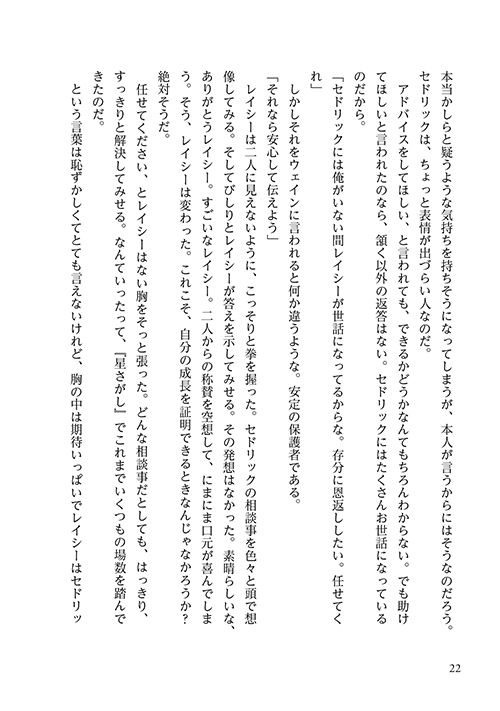 本当かしらと疑うような気持ちを持ちそうになってしまうが、本人が言うからにはそうなのだろう。
セドリックは、ちょっと表情が出づらい人なのだ。
アドバイスをしてほしい、と言われても、できるかどうかなんてもちろんわからない。でも助け
てほしいと言われたのなら、頷く以外の返答はない。セドリックにはたくさんお世話になっている
のだから。
「セドリックには俺がいない間レイシーが世話になってるからな。存分に恩返ししたい。任せてく
れ」
しかしそれをウェインに言われると何か違うような。安定の保護者である。
「それなら安心して伝えよう」
レイシーは二人に見えないように、こっそりと拳を握った。セドリックの相談事を色々と頭で想
像してみる。そしてびしりとレイシーが答えを示してみせる。その発想はなかった。素晴らしいな、
ありがとうレイシー。すごいなレイシー。二人からの称賛を空想して、にまにま口元が喜んでしま
う。そう、レイシーは変わった。これこそ、自分の成長を証明できるときなんじゃなかろうか？
絶対そうだ。
任せてください、とレイシーはない胸をそっと張った。どんな相談事だとしても、はっきり、
すっきりと解決してみせる。なんていったって、『星さがし』でこれまでいくつもの場数を踏んで
きたのだ。
という言葉は恥ずかしくてとても言えないけれど、胸の中は期待いっぱいでレイシーはセドリッ
22